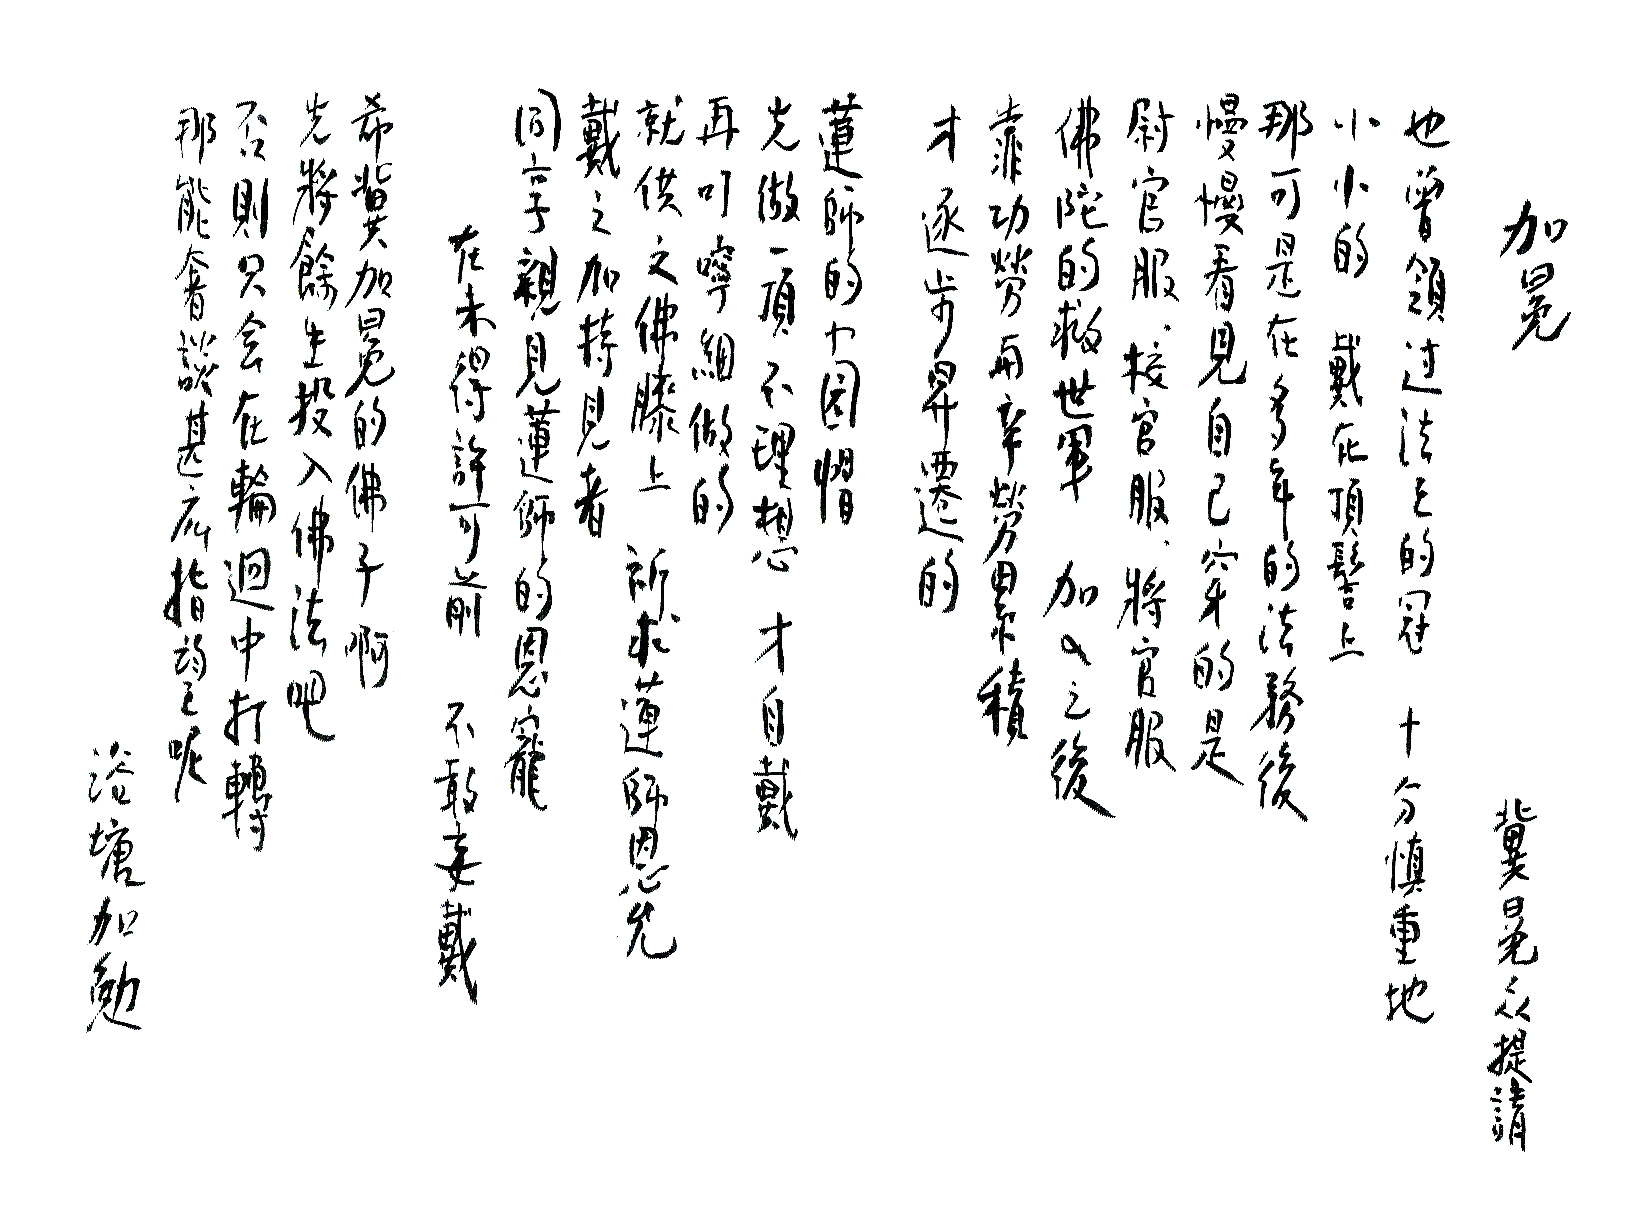 加冕
冀冕众提請
也曾領过法王的冠 十分慎重地
小小的 戴在頂髻上
那可是在多年的法務後
慢慢看見自己穿的是
尉官服、校官服、將官服
佛陀的救世軍 加入之後
靠功勞兩辛勞累積
才逐步昇遷的
蓮師的中國帽
先做一頂不理想 才自戴
再叮嚀細做的
就供之佛膝上 祈求蓮師恩允
戴之加持見者
同享親見蓮師的恩寵
在未得許可前 不敢妄戴
希冀加冕的佛子啊
先將餘生投入佛法吧
否則只会在輪迴中打轉
那能奢談甚底指望呢
浴塘加勉